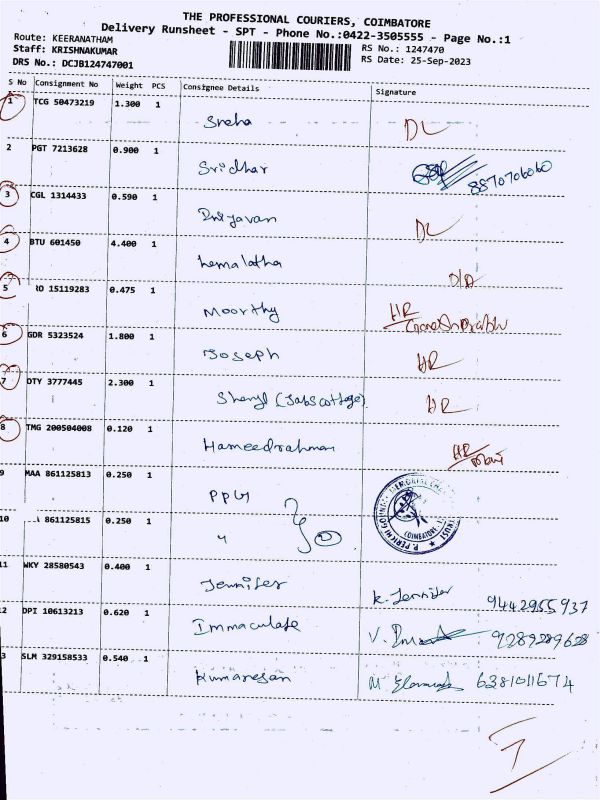 THE PROFESSIONAL COURIERS, COIMBATORE
Delivery Runsheet - SPT - Phone No.:0422-3505555 - Page No.:1
Route: KEERANATHAM
Staff: KRISHNAKUMAR
DRS No.: DCJB124747001
RS No.: 1247470
RS Date: 25-Sep-2023
S No Consignment No Weight PCS Consignee Details Signature
1 TCG 50473219 1.300 1
Sneha DL
2 PGT 7213628 0.900 1
Sridhar 8870706060
3 CGL 1314433 0.590 1
DL
4 BTU 601450 4.400 1
hemalatha D/A
5 RO 15119283 0.475 1
Moorthy HR
6 GDR 5323524 1.800 1
Joseph HR
7 DTY 3777445 2.300 1
Sheryl HR
8 TMG 200504008 0.120 1
Hameedrahman HR
9 MAA 861125813 0.250 1
PPG
10 861125815 0.250 1
COIMBATORE
TRUST
11 WKY 28580543 0.400 1
Jennifer K. Jennifer 9442955937
2 DPI 10613213 0.620 1
Immaculate V. 9289289628
3 SLM 329158533 0.540 1
Kumaresan M 6381011674